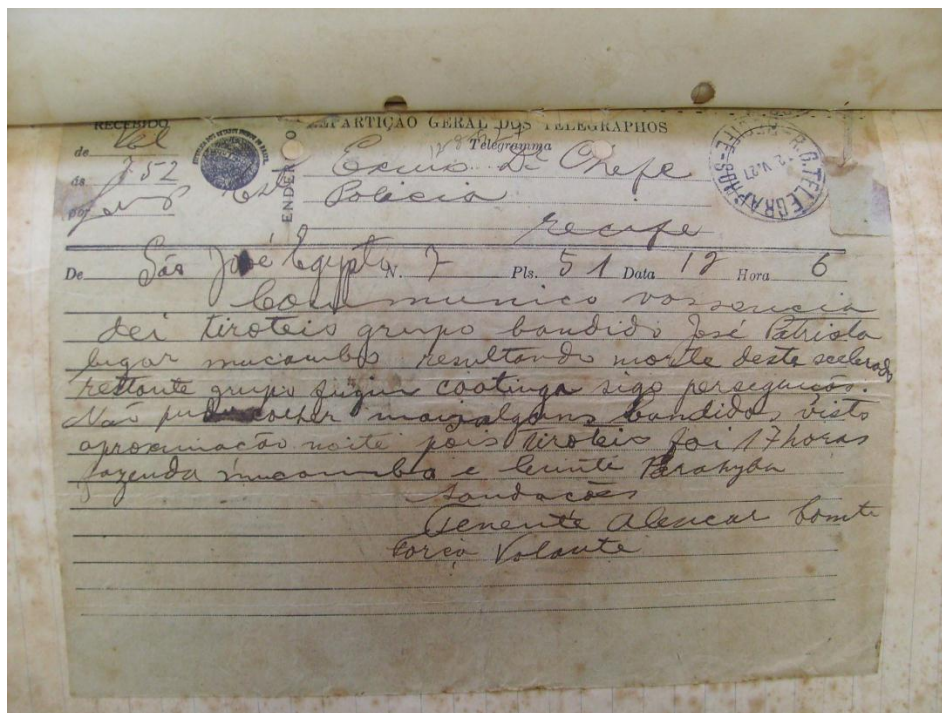 RECEBIDO
REPARTIÇÃO GERAL DOS TELEGRAPHOS
Telegramma
de
ás 7.52
por
ENDEREÇO
Exmo Dr Chefe
Policia
recife
De São José Egypto N. 7 Pls. 51 Data 12 Hora 6
Communico vossencia
dei tiroteio grupo bandido José Patriota
lugar mucambo resultando morte deste scelerado
restante grupo fugiu caatinga sigo perseguição.
Não pude colher mais alguns bandidos visto
aproximação noite pois tiroteio foi 17 horas
fazenda mucambo e limite Parahyba
Saudações
Tenente Alencar Comte
Força Volante